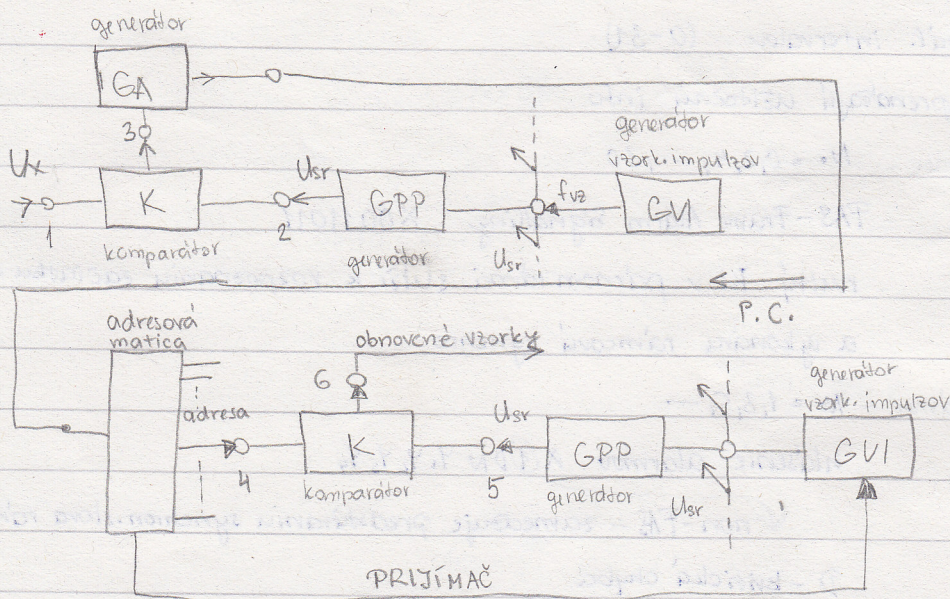 generátor
GA
3
Ux
K
1
komparátor
Usr
2
GPP
generátor
fvz
Usr
generátor
vzork. impulzov
GVI
P.C.
adresová
matica
adresa
4
6
obnovené vzorky
K
komparátor
Usr
5
GPP
generátor
Usr
generátor
vzork. impulzov
GVI
PRIJÍMAČ